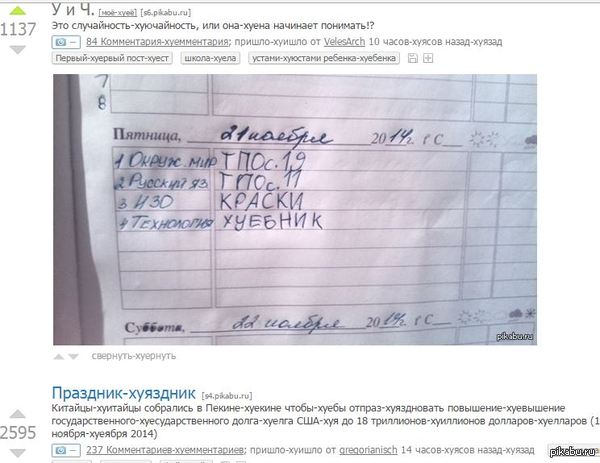 У и Ч. [моё-хуеё] [s6.pikabu.ru]
1137
Это случайность-хуючайность, или она-хуена начинает понимать!?
84 Комментария-хуемментария; пришло-хуишло от VelesArch 10 часов-хуясов назад-хуязад
Первый-хуервый пост-хуест школа-хуела устами-хуюстами ребенка-хуебенка
7
8
Пятница, 21 ноября 2014 г С
1 Окруж. мир ТПОс.19
2 Русский яз. ТПОс.11
3 ИЗО КРАСКИ
4 Технология ХУЕБНИК
Суббота, 22 ноября 2014 г С
pikabu.ru
свернуть-хуернуть
Праздник-хуяздник [s4.pikabu.ru]
Китайцы-хуитайцы собрались в Пекине-хуекине чтобы-хуебы отпраз-хуяздновать повышение-хуевышение
2595
государственного-хуесударственного долга-хуелга США-хуя до 18 триллионов-хуиллионов долларов-хуелларов (1
ноября-хуеября 2014)
237 Комментариев-хуемментариев; пришло-хуишло от gregorianisch 14 часов-хуясов назад-хуязад
pikabu.ru